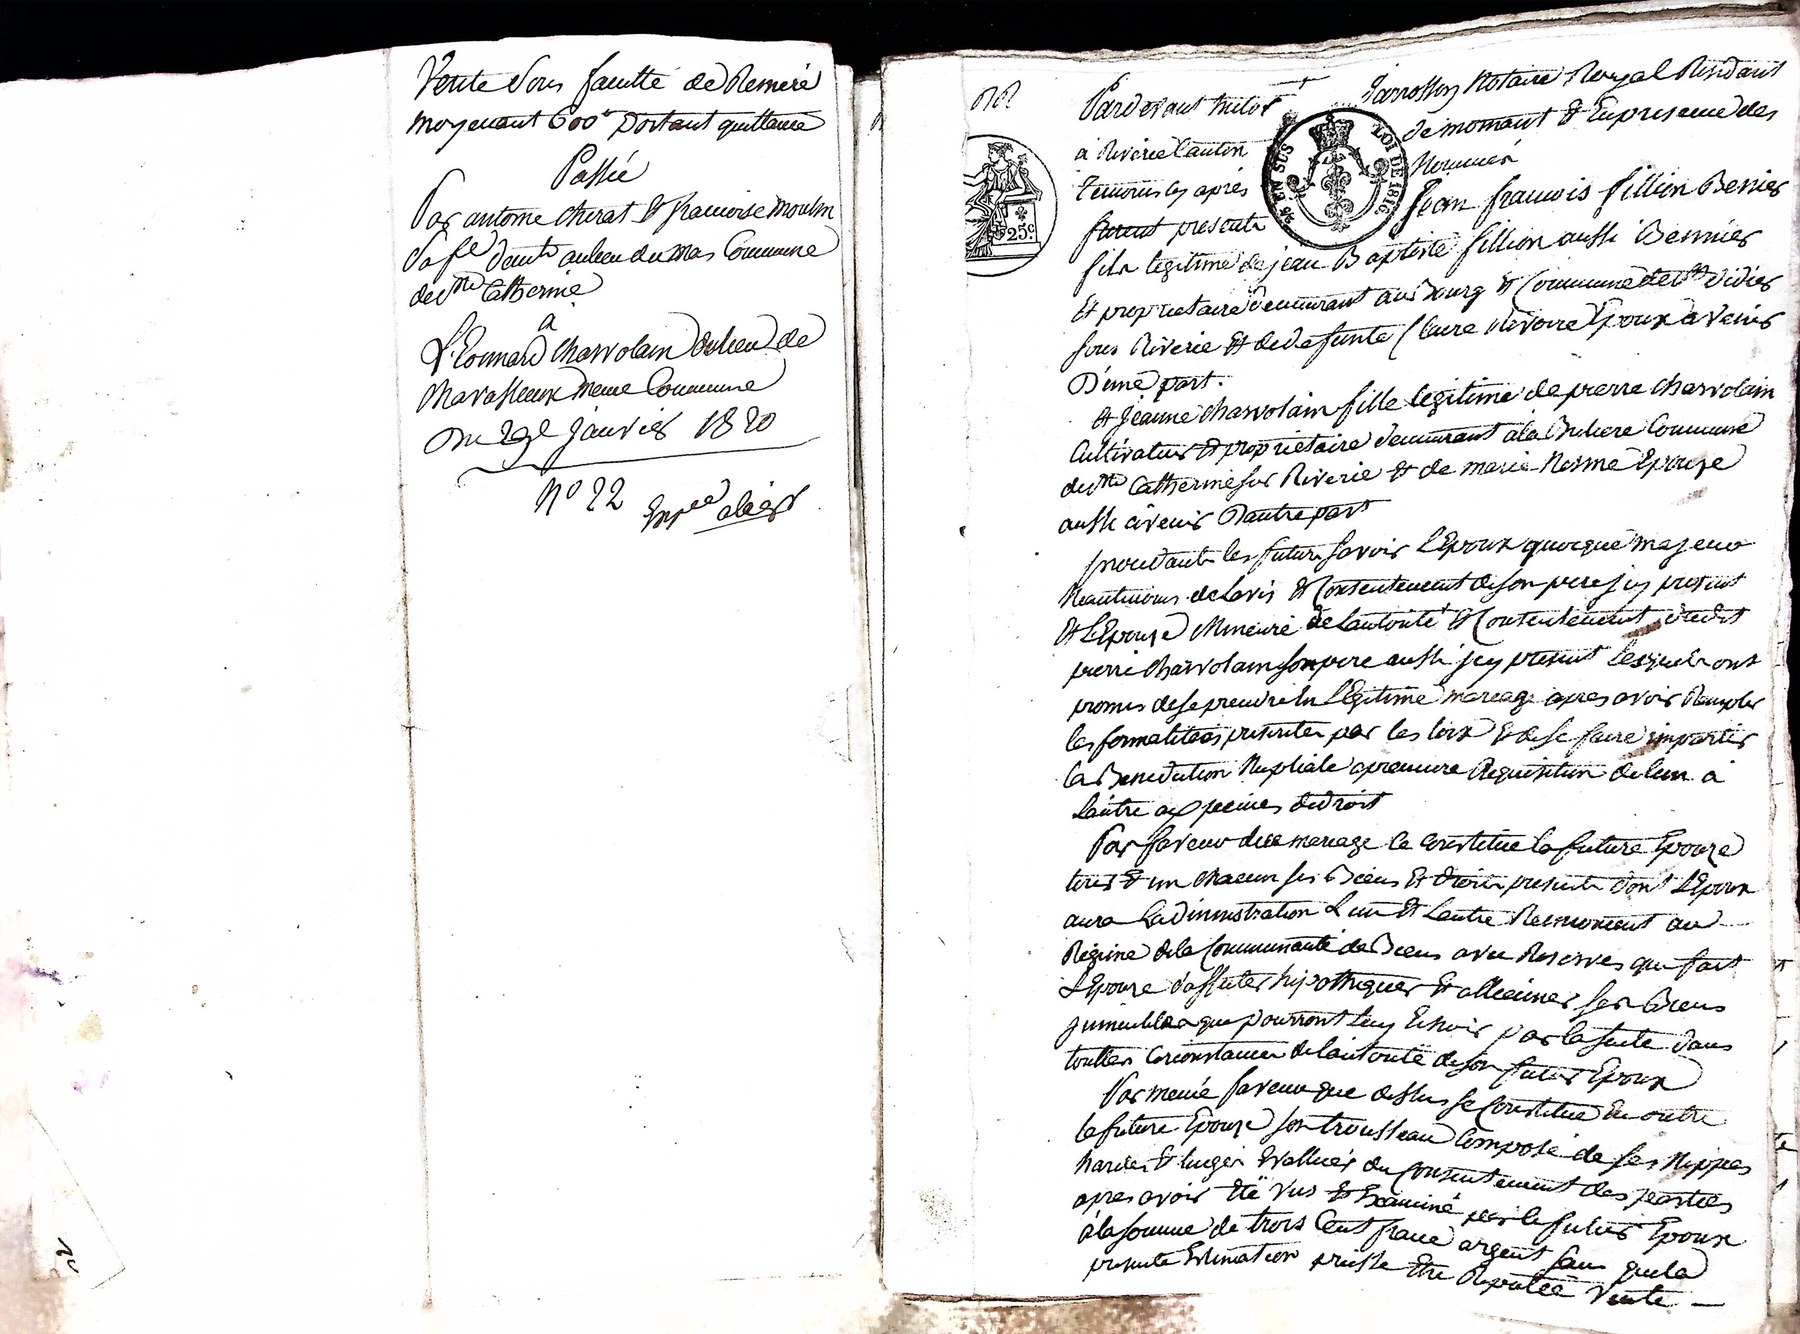 Vente Sous faculté de Remeré
moyenant 600f portant quittance
Passée
Par antoine cherat & francoise moulin
Sa fe demts au lieu du mas Commune
de Ste Catherine
a
Léonnard Charvolain du lieu de
Chavasseux meme Commune
Du 29e Janvier 1820
N° 22
Expee
Pardevant
Notaire Royal Residant
a Riverie Canton
de mornant & En presence des
temoins cy après
Nommés
furent presents
Jean francois fillion Bennier
fils legitime de jean Baptiste fillion aussi Bennier
Et proprietaire demeurant au Bourg & Commune de St Didier
sous Riverie & de defunte Claire Revoire Epoux a Venir
D'une part.
& Jeanne Charvolain fille legitime de pierre Charvolain
Cultivateur & proprietaire demeurant à la Commune
de Ste Catherine sur Riverie & de marie Epouze
aussi àvenir Dautre part
procedants les futurs savoir L'Epoux quoique majeur
Neantmoins de Lavis & Consentement de son pere jcy present
Et L'Epouze Mineure de Lautorité & Consentement dudit
pierre Charvolain son pere aussi jcy present Lesquels ont
promis de se prendre en Légitime mareage apres avoir Remplis
les formalitées presentes par les loix & de se faire impartir
la Benediction Nuptiale a premiere Requisition de lun à
lautre aux peines de droit
Par faveur du mareage Se Constitue la future Epouze
tous & un chacun ses Biens Et droits presents dont L'Epoux
aura L'administration L'un Et Lautre au
Régime de la Communauté de Biens avec Reserves que fait
L'Epouze d'affecter hipothequer & allieiner ses Biens
jmmeubles que pourront Luy Echoir par la suite dans
touttes Circonstances de l'autorité de son futur Epoux
Par meme faveur que dessus se Constitue En outre
la future Epouze son trousseau Composé de ses Nippes
hardes & linges Evallués du Consentement des parties
apres avoir Eté Vus & Examiné par le futur Epoux
à la somme de trois Cent francs argent sans que la
presente Estimation puisse Etre Reputée Vente —
25 EN SUS LOI DE 1816
25c